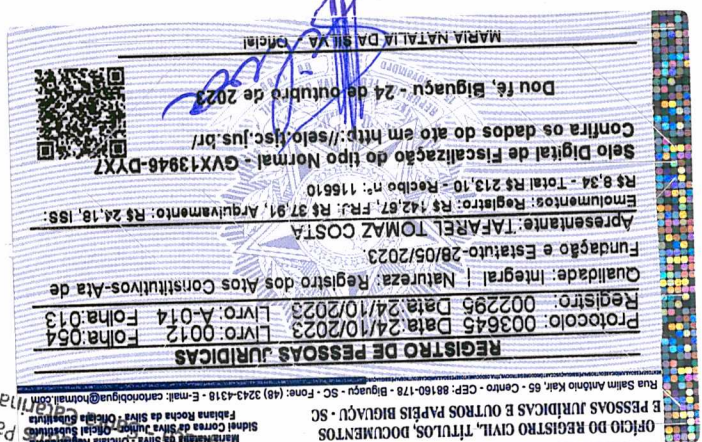 OFÍCIO DO REGISTRO CIVIL, TÍTULOS, DOCUMENTOS
E PESSOAS JURÍDICAS E OUTROS PAPÉIS BIGUAÇU - SC
Maria Natalia da Silva
Sidnei Correa da Silva Junior - Oficial Substituto
Fabiana Rocha da Silva - Oficiala Substituta
Rua Salim Antônio Kair, 65 - Centro - CEP: 88160-178 - Biguaçu - SC - Fone: (48) 3243-4318 - E-mail: cartoriobigua@hotmail.com
REGISTRO DE PESSOAS JURÍDICAS
Protocolo: 003645 Data: 24/10/2023 Livro: 0012 Folha: 054
Registro: 002295 Data: 24/10/2023 Livro: A-014 Folha: 013
Qualidade: Integral | Natureza: Registro dos Atos Constitutivos-Ata de
Fundação e Estatuto-28/05/2023
Apresentante: TAFAREL TOMAZ COSTA
Emolumentos: Registro: R$ 142,67, FRJ: R$ 37,91, Arquivamento: R$ 24,18, ISS:
R$ 8,34 - Total R$ 213,10 - Recibo nº: 116510
Selo Digital de Fiscalização do tipo Normal - GVX13946-DYX7
Confira os dados do ato em http://selo.tjsc.jus.br/
Dou fé, Biguaçu - 24 de outubro de 2023
MARIA NATALIA DA SILVA - Oficial